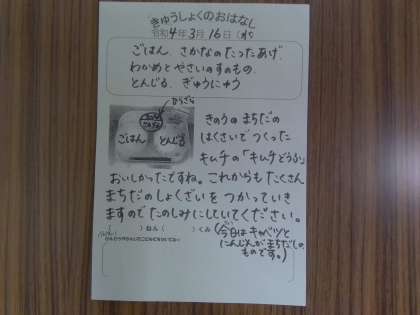 きゅうしょくのおはなし
令和4年3月16日(水)
ごはん、さかなのたつたあげ、
わかめとやさいのすのもの、
とんじる、ぎゅうにゅう
からざら
ごはん
とんじる
きのうのまちだの
はくさいでつくった
キムチの「キムチどうふ」
おいしかったですね。これからもたくさん
まちだのしょくざいをつかっていき
ますのでたのしみにしていてください。
)ねん(
)くみ
(今日はキャベツと
にんじんがまちださんの
ものです。)